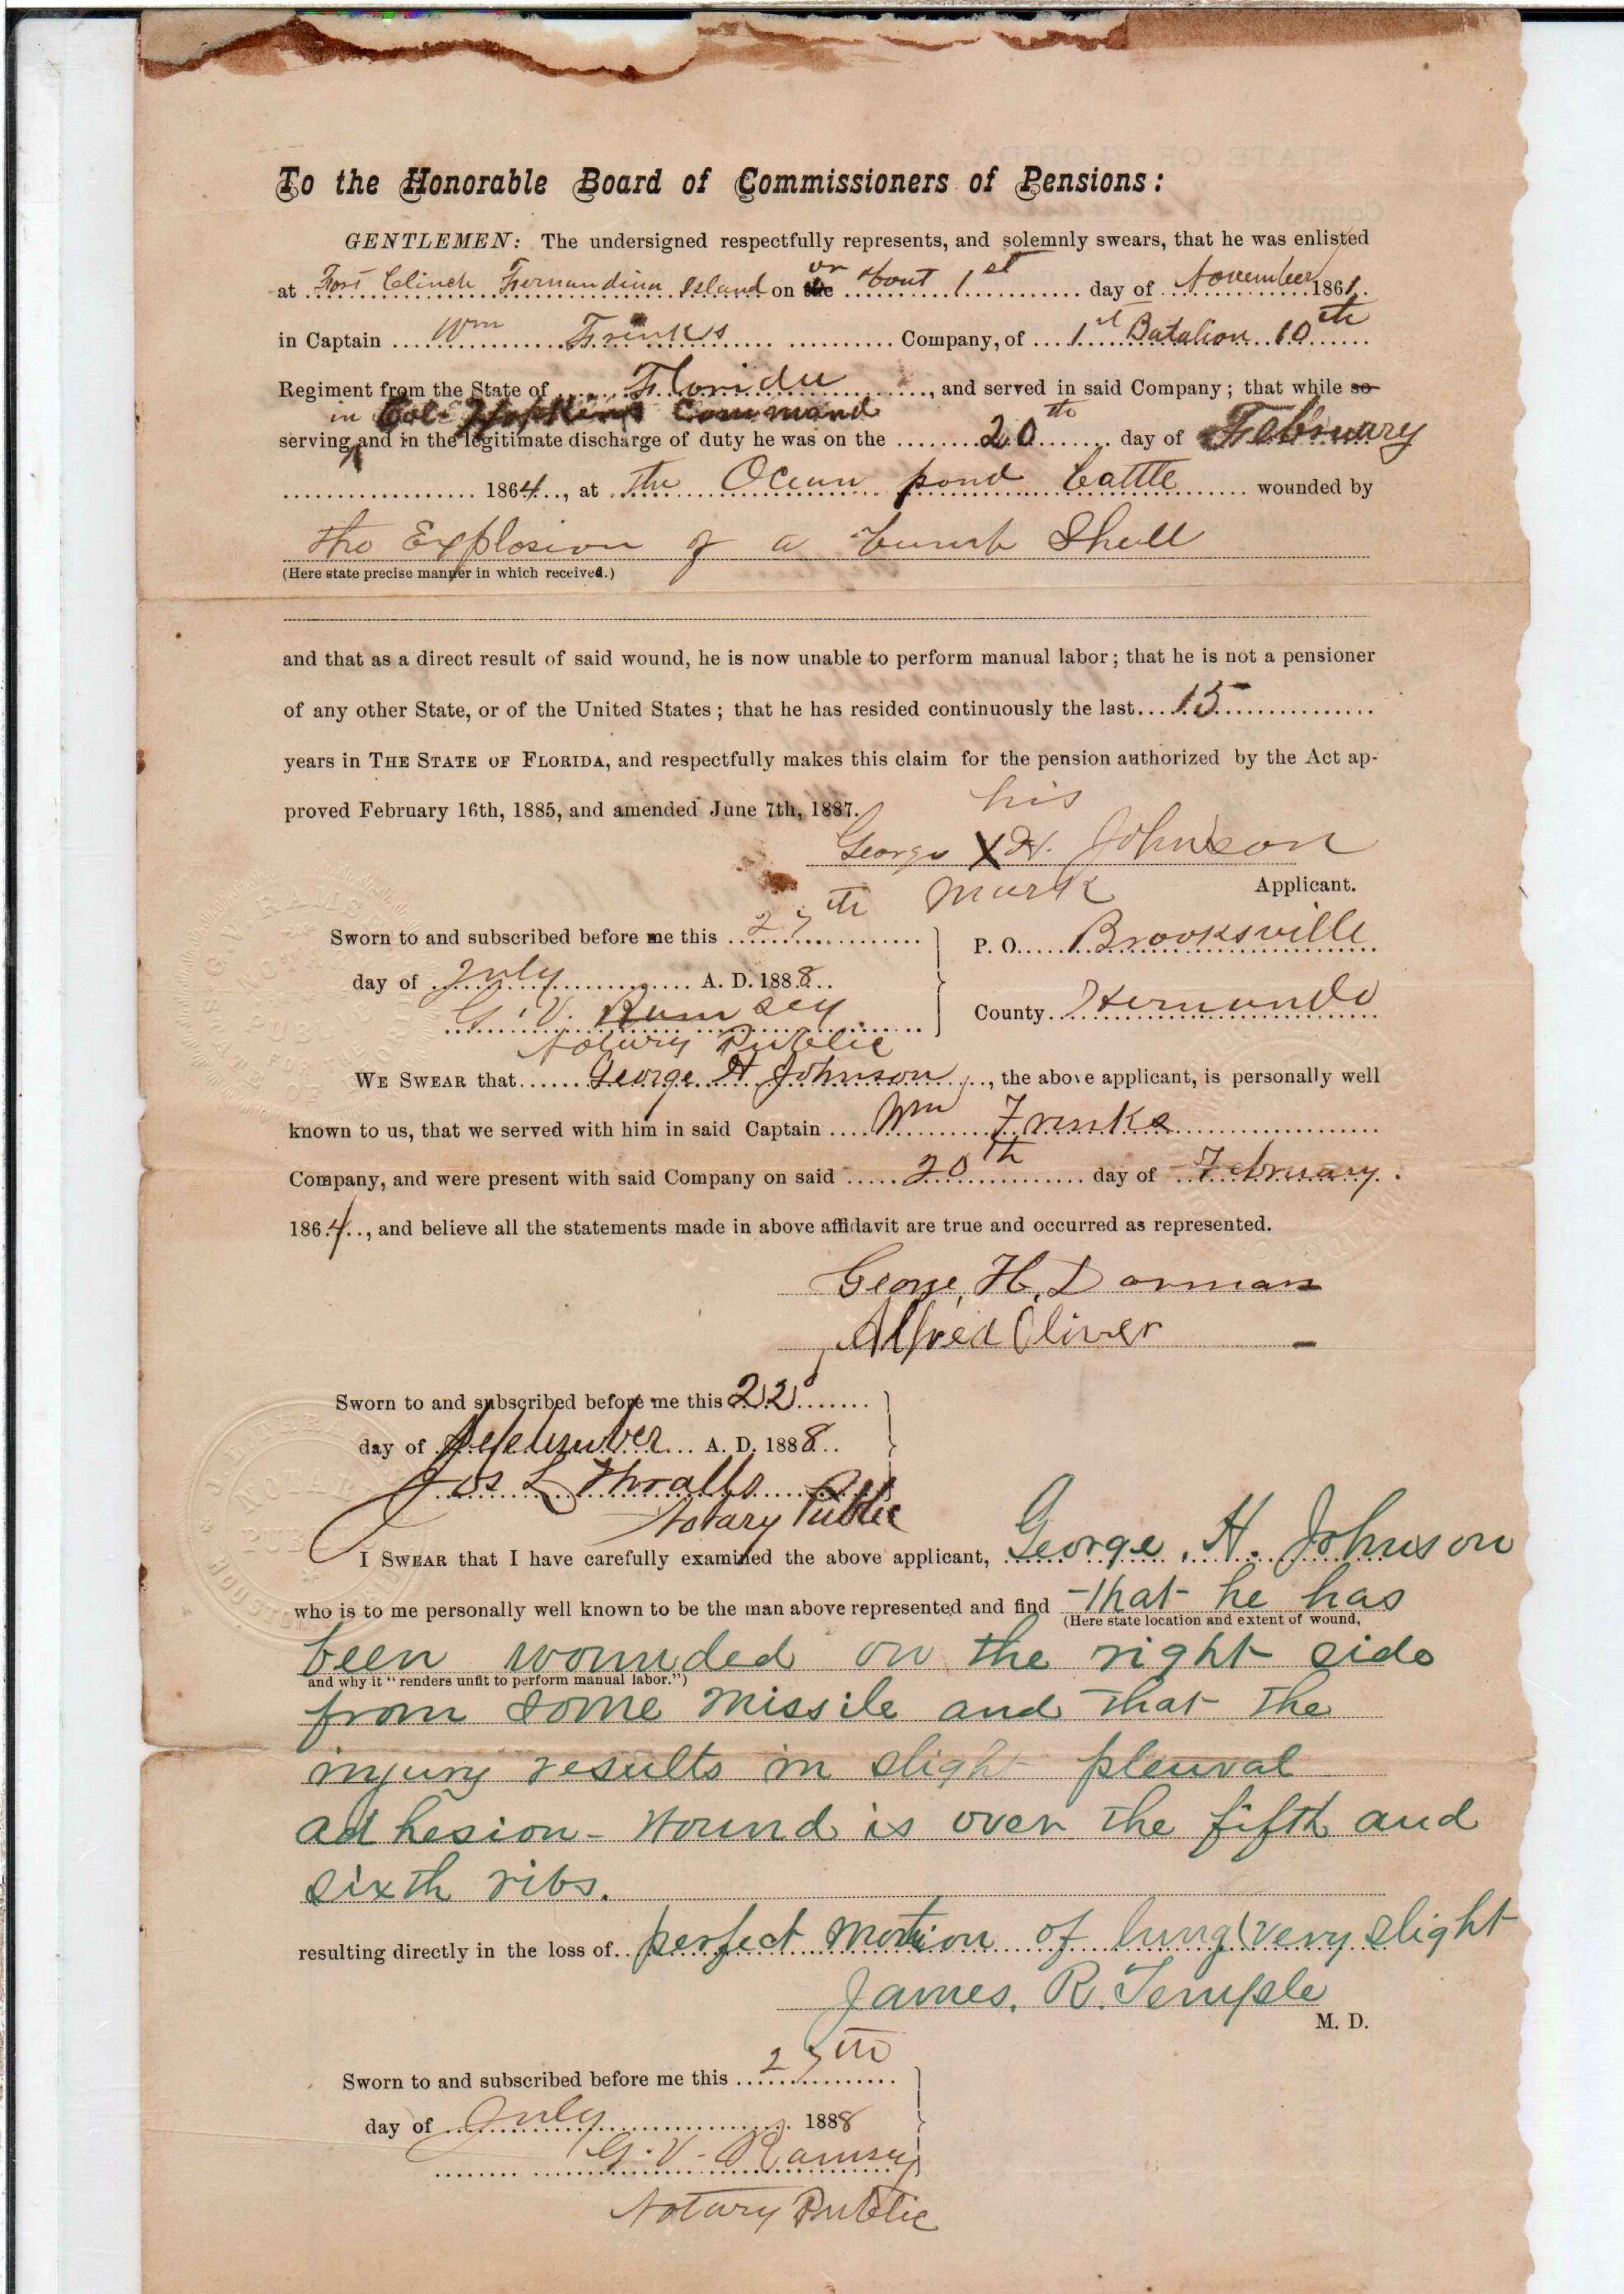 To the Honorable Board of Commissioners of Pensions:
GENTLEMEN: The undersigned respectfully represents, and solemnly swears, that he was enlisted
at Fort Clinch Fernandina Island on the or about 1st day of November 1861.
in Captain Wm Frinks Company, of 1st Batalion 10th
Regiment from the State of Florida, and served in said Company; that while so
in Col Hopkins Command
serving and in the legitimate discharge of duty he was on the 20th day of February
1864, at the Ocean pond battle wounded by
the Explosion of a bumb Shell
(Here state precise manner in which received.)
and that as a direct result of said wound, he is now unable to perform manual labor; that he is not a pensioner
of any other State, or of the United States; that he has resided continuously the last 15
years in THE STATE OF FLORIDA, and respectfully makes this claim for the pension authorized by the Act ap-
proved February 16th, 1885, and amended June 7th, 1887.
his
George X H. Johnson
mark Applicant.
Sworn to and subscribed before me this 27th
P. O. Brooksville
day of July A. D. 1888
County Hernando
G. V. Ramsey
Notary Public
WE SWEAR that George H Johnson, the above applicant, is personally well
known to us, that we served with him in said Captain Wm Frinks
Company, and were present with said Company on said 20th day of February.
1864, and believe all the statements made in above affidavit are true and occurred as represented.
George, H, Dorman
Alfred Oliver
Sworn to and subscribed before me this 22
day of September A. D. 1888
Jos L Thralls
Notary Public
I SWEAR that I have carefully examined the above applicant, George, H. Johnson
who is to me personally well known to be the man above represented and find that he has
(Here state location and extent of wound,
been wounded on the right side
and why it "renders unfit to perform manual labor.")
from some missile and that the
injury results in slight pleural
adhesion - Wound is over the fifth and
sixth ribs.
resulting directly in the loss of perfect motion of lung (very slight
James. R. Temple
M. D.
Sworn to and subscribed before me this 27th
day of July 1888
G. V. Ramsey
Notary Public